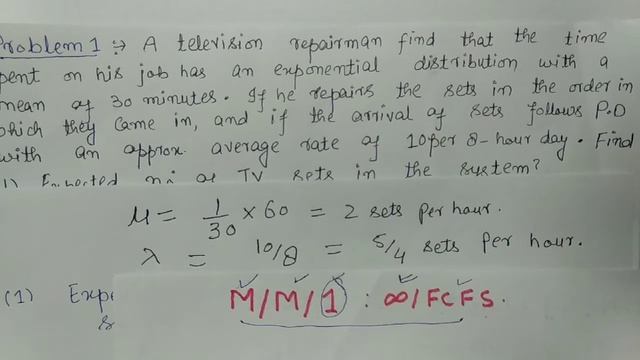 Problem 1 :- A television repairman find that the time
pent on his job has an exponential distribution with a
mean of 30 minutes. If he repairs the sets in the order in
which they came in, and if the arrival of sets follows P.D
with an approx. average rate of 10 per 8-hour day. Find
TV sets in the system?
μ = 1/30 × 60 = 2 sets per hour.
λ = 10/8 = 5/4 sets per hour.
(1) Exp
M/M/1 : ∞/FCFS.
s